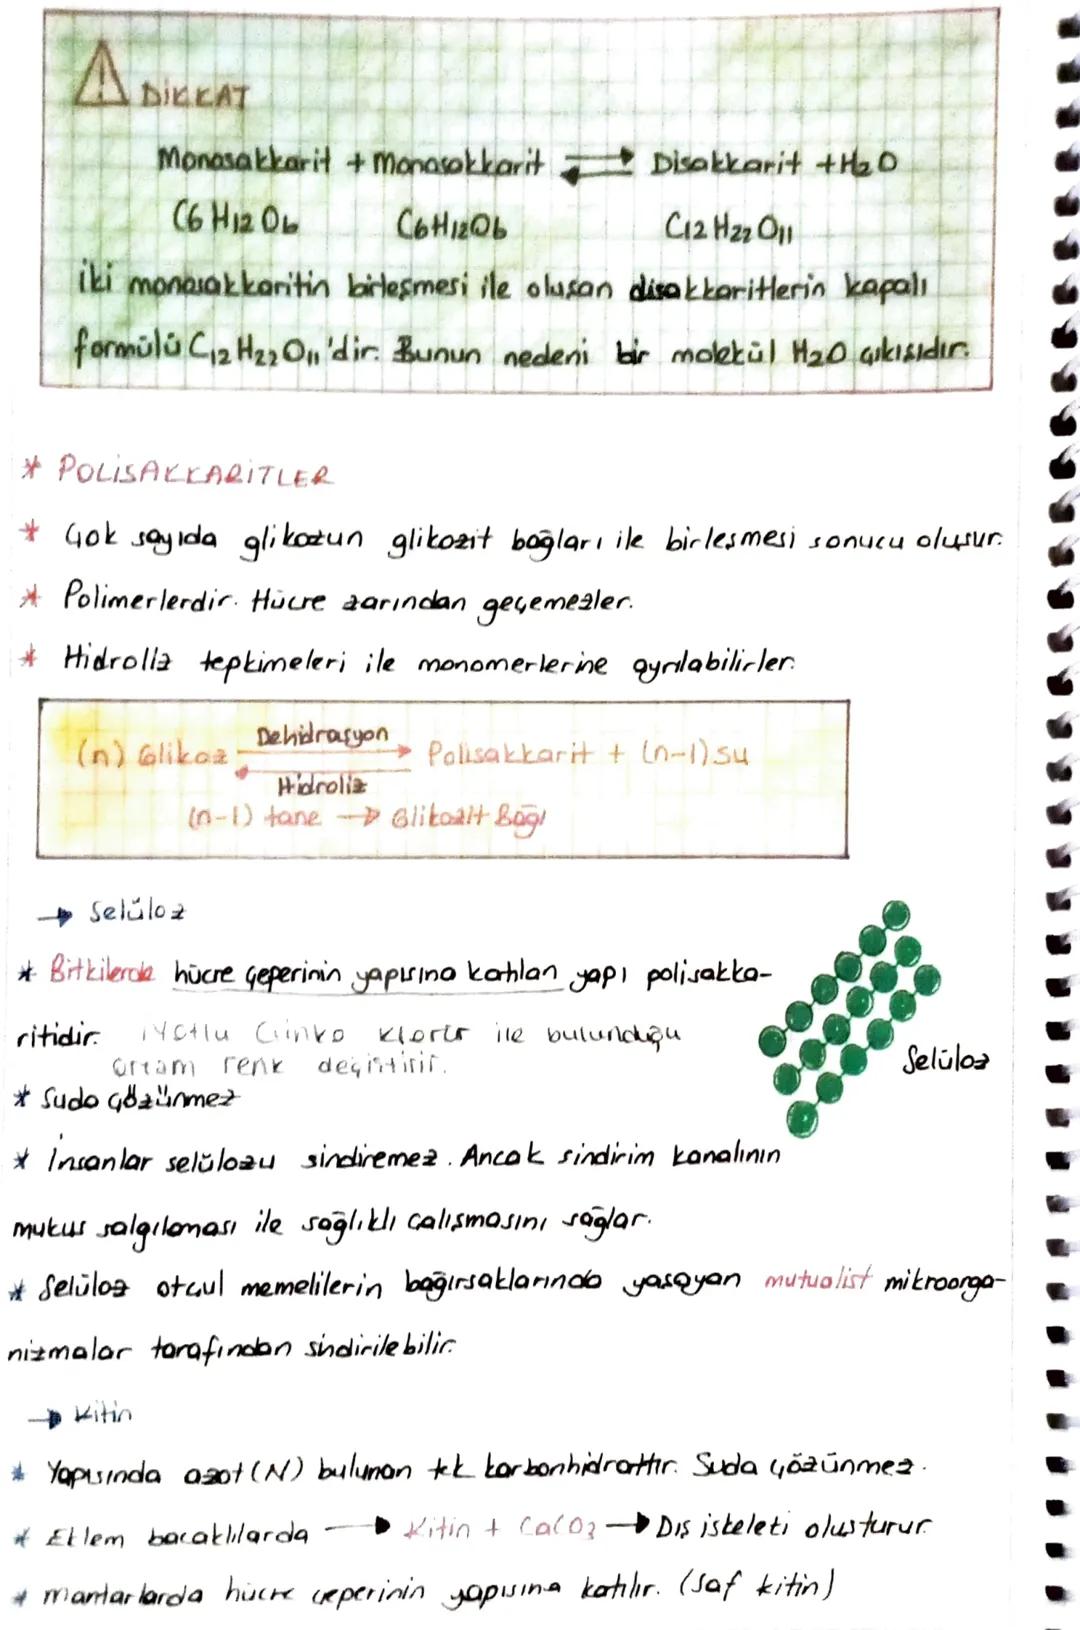 DİKKAT
Monosakkarit + Monosakkarit ⇌ Disakkarit + H2O
C6 H12 O6 C6H12O6 C12 H22 O11
iki monosakkaritin birleşmesi ile oluşan disakkaritlerin kapalı
formülü C12 H22 O11'dir. Bunun nedeni bir molekül H2O çıkışıdır.
* POLİSAKKARİTLER
* Çok sayıda glikozun glikozit bağları ile birleşmesi sonucu oluşur.
* Polimerlerdir. Hücre zarından geçemezler.
* Hidroliz tepkimeleri ile monomerlerine ayrılabilirler.
Dehidrasyon
(n) Glikoz ⇌ Polisakkarit + (n-1) su
Hidroliz
(n-1) tane → Glikozit Bağı
→ Selüloz
* Bitkilerde hücre çeperinin yapısına katılan yapı polisakka-
ritidir. iyotlu Çinko klorür ile bulunduğu
ortam renk değiştirir.
Selüloz
* Suda çözünmez
* İnsanlar selülozu sindiremez. Ancak sindirim kanalının
mukus salgılaması ile sağlıklı çalışmasını sağlar.
* Selüloz otçul memelilerin bağırsaklarında yaşayan mutualist mikroorga-
nizmalar tarafından sindirilebilir.
→ Kitin
* Yapısında azot (N) bulunan tek karbonhidrattır. Suda çözünmez.
* Eklem bacaklılarda → Kitin + CaCO3 → Dış iskeleti oluşturur.
* Mantarlarda hücre çeperinin yapısına katılır. (Saf kitin)